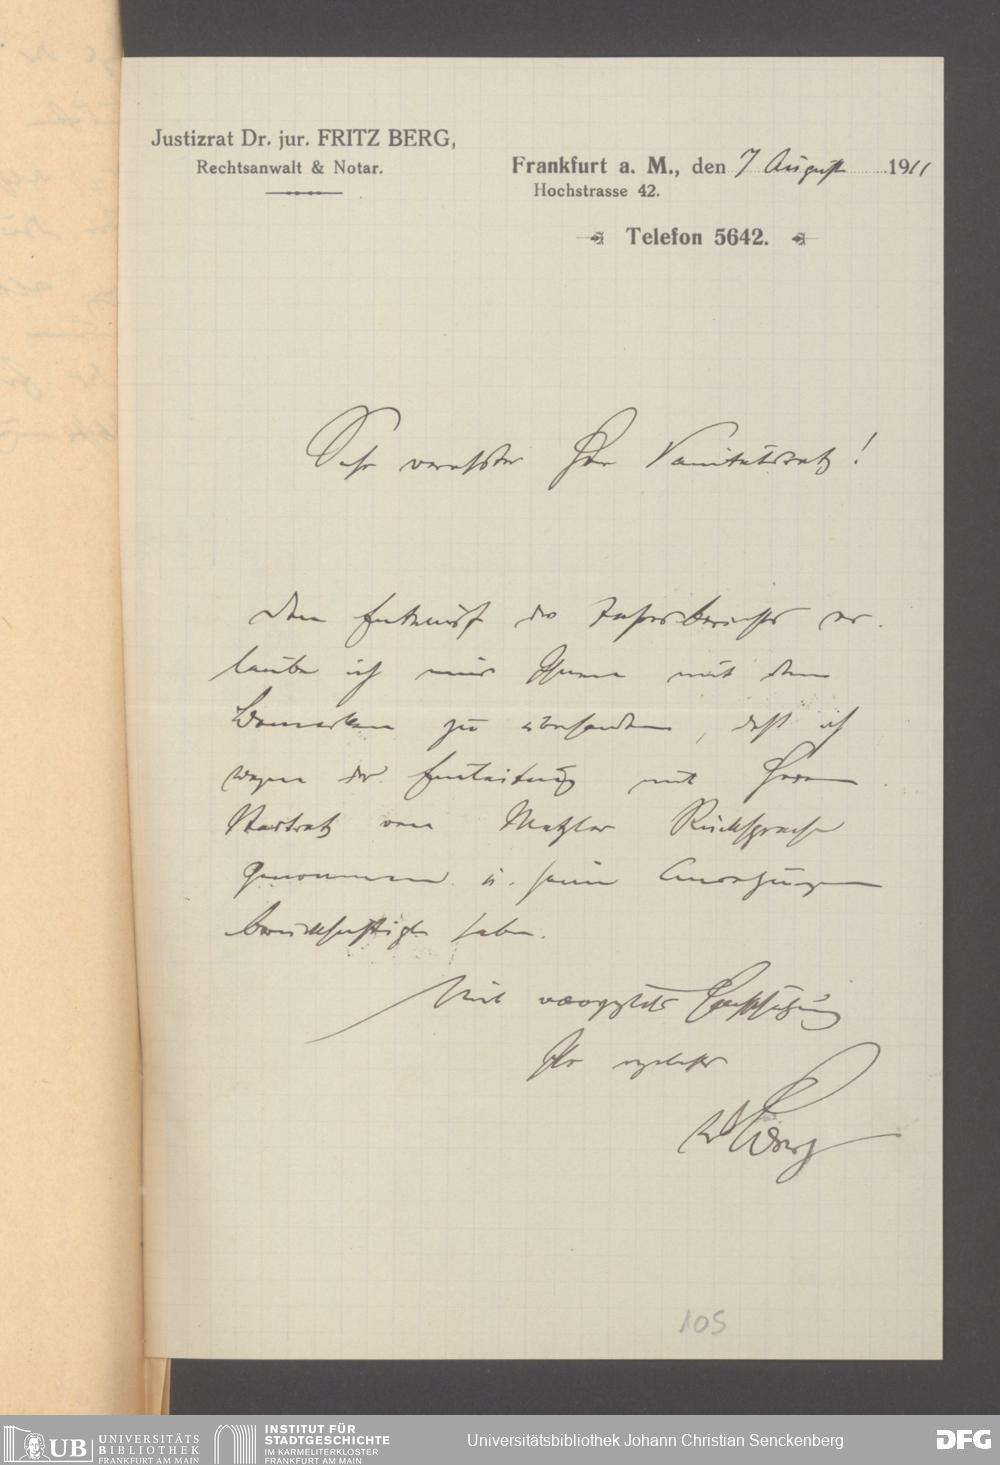 Justizrat Dr. jur. FRITZ BERG,
Rechtsanwalt & Notar.
Frankfurt a. M., den 7 August 1911
Hochstrasse 42.
Telefon 5642.
Sehr verehrter Herr Sanitätsrath!
Den Entwurf des Jahresberichts er-
laube ich mir Ihnen mit dem
Bemerken zu übersenden, daß ich
wegen der Einleitung mit Herrn
Stadtrath von Metzler Rücksprache
genommen u. seine Anregungen
berücksichtigt habe.
Mit vorzüglicher Hochschätzung
Ihr ergebenster
Berg
105
UB UNIVERSITÄTS
BIBLIOTHEK
FRANKFURT AM MAIN
INSTITUT FÜR
STADTGESCHICHTE
IM KARMELITERKLOSTER
FRANKFURT AM MAIN
Universitätsbibliothek Johann Christian Senckenberg
DFG